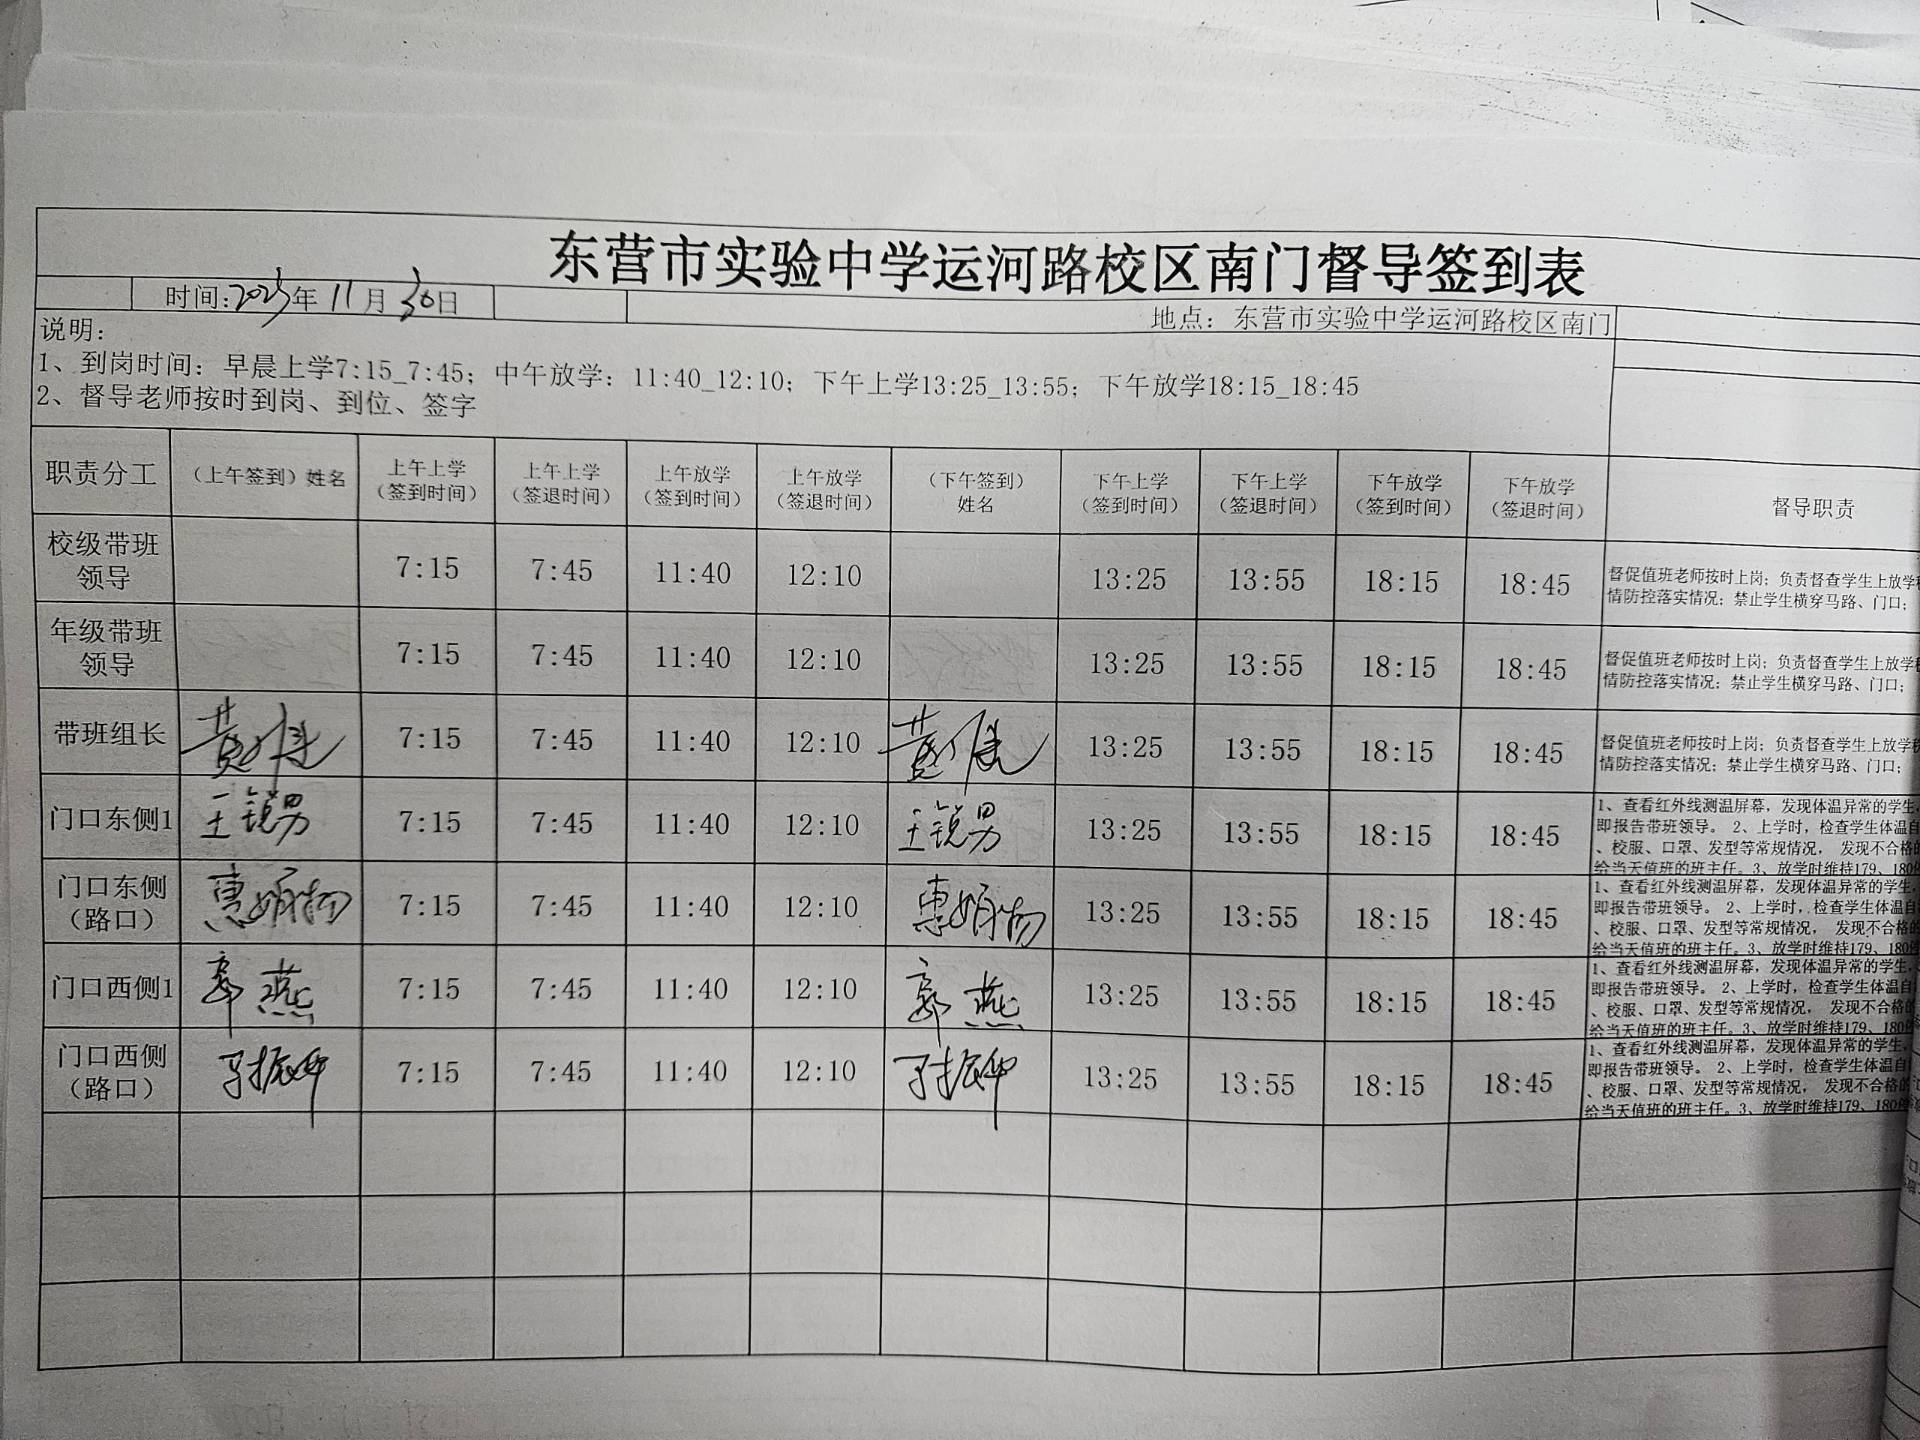 东营市实验中学运河路校区南门督导签到表
时间:2023年 11月 30日
地点: 东营市实验中学运河路校区南门
说明:
1、到岗时间: 早晨上学7:15_7:45; 中午放学: 11:40_12:10; 下午上学13:25_13:55; 下午放学18:15_18:45
2、督导老师按时到岗、到位、签字
职责分工 (上午签到)姓名 上午上学(签到时间) 上午上学(签退时间) 上午放学(签到时间) 上午放学(签退时间) (下午签到)姓名 下午上学(签到时间) 下午上学(签退时间) 下午放学(签到时间) 下午放学(签退时间) 督导职责
校级带班领导 7:15 7:45 11:40 12:10 13:25 13:55 18:15 18:45
督促值班老师按时上岗; 负责督查学生上放学
情防控落实情况; 禁止学生横穿马路、门口;
年级带班领导 7:15 7:45 11:40 12:10 13:25 13:55 18:15 18:45
督促值班老师按时上岗; 负责督查学生上放学
情防控落实情况; 禁止学生横穿马路、门口;
带班组长 7:15 7:45 11:40 12:10 13:25 13:55 18:15 18:45
督促值班老师按时上岗; 负责督查学生上放学
情防控落实情况; 禁止学生横穿马路、门口;
门口东侧1 王锐男 7:15 7:45 11:40 12:10 王锐男 13:25 13:55 18:15 18:45
1、查看红外线测温屏幕, 发现体温异常的学生,
即报告带班领导。 2、上学时, 检查学生体温自
、校服、口罩、发型等常规情况, 发现不合格的
给当天值班的班主任。3、放学时维持179、180
门口东侧(路口) 7:15 7:45 11:40 12:10 13:25 13:55 18:15 18:45
1、查看红外线测温屏幕, 发现体温异常的学生,
即报告带班领导。 2、上学时, 检查学生体温自
、校服、口罩、发型等常规情况, 发现不合格的
给当天值班的班主任。3、放学时维持179、180
门口西侧1 郭燕 7:15 7:45 11:40 12:10 郭燕 13:25 13:55 18:15 18:45
1、查看红外线测温屏幕, 发现体温异常的学生,
即报告带班领导。 2、上学时, 检查学生体温自
、校服、口罩、发型等常规情况, 发现不合格的
给当天值班的班主任。3、放学时维持179、180
门口西侧(路口) 马振华 7:15 7:45 11:40 12:10 马振华 13:25 13:55 18:15 18:45
1、查看红外线测温屏幕, 发现体温异常的学生,
即报告带班领导。 2、上学时, 检查学生体温自
、校服、口罩、发型等常规情况, 发现不合格的
给当天值班的班主任。3、放学时维持179、180